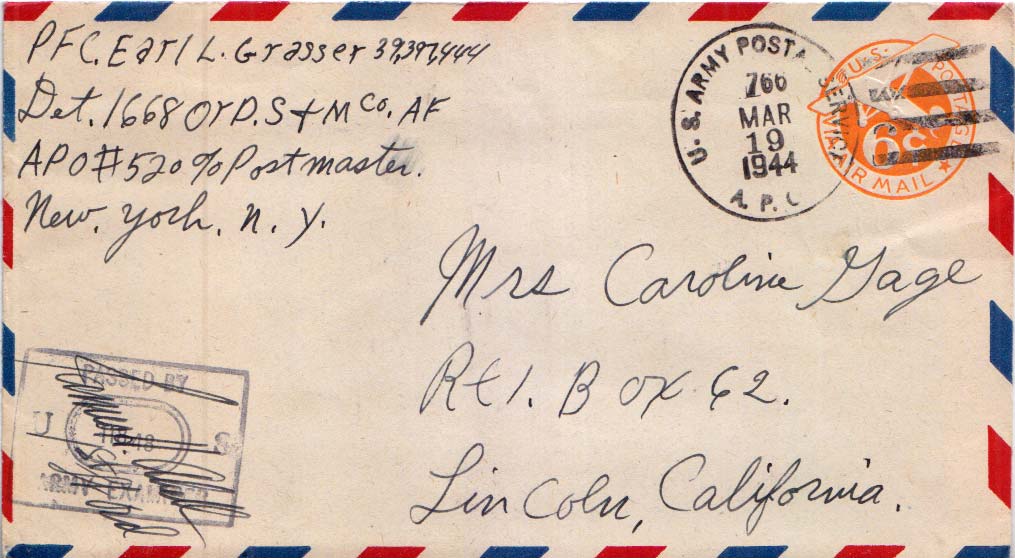 PFC. Earl L. Grasser 39,397,444
Det. 1668 Ord. S + M Co. AF
APO #520 % Postmaster.
New. York, N. Y.
U. S. ARMY POSTAL SERVICE
766
MAR
19
1944
A. P. O
U.S. POSTAGE
6¢
VIA AIR MAIL
Mrs Caroline Gage
Rt 1. Box 62.
Lincoln, California.
PASSED BY
U S
ARMY EXAMINER